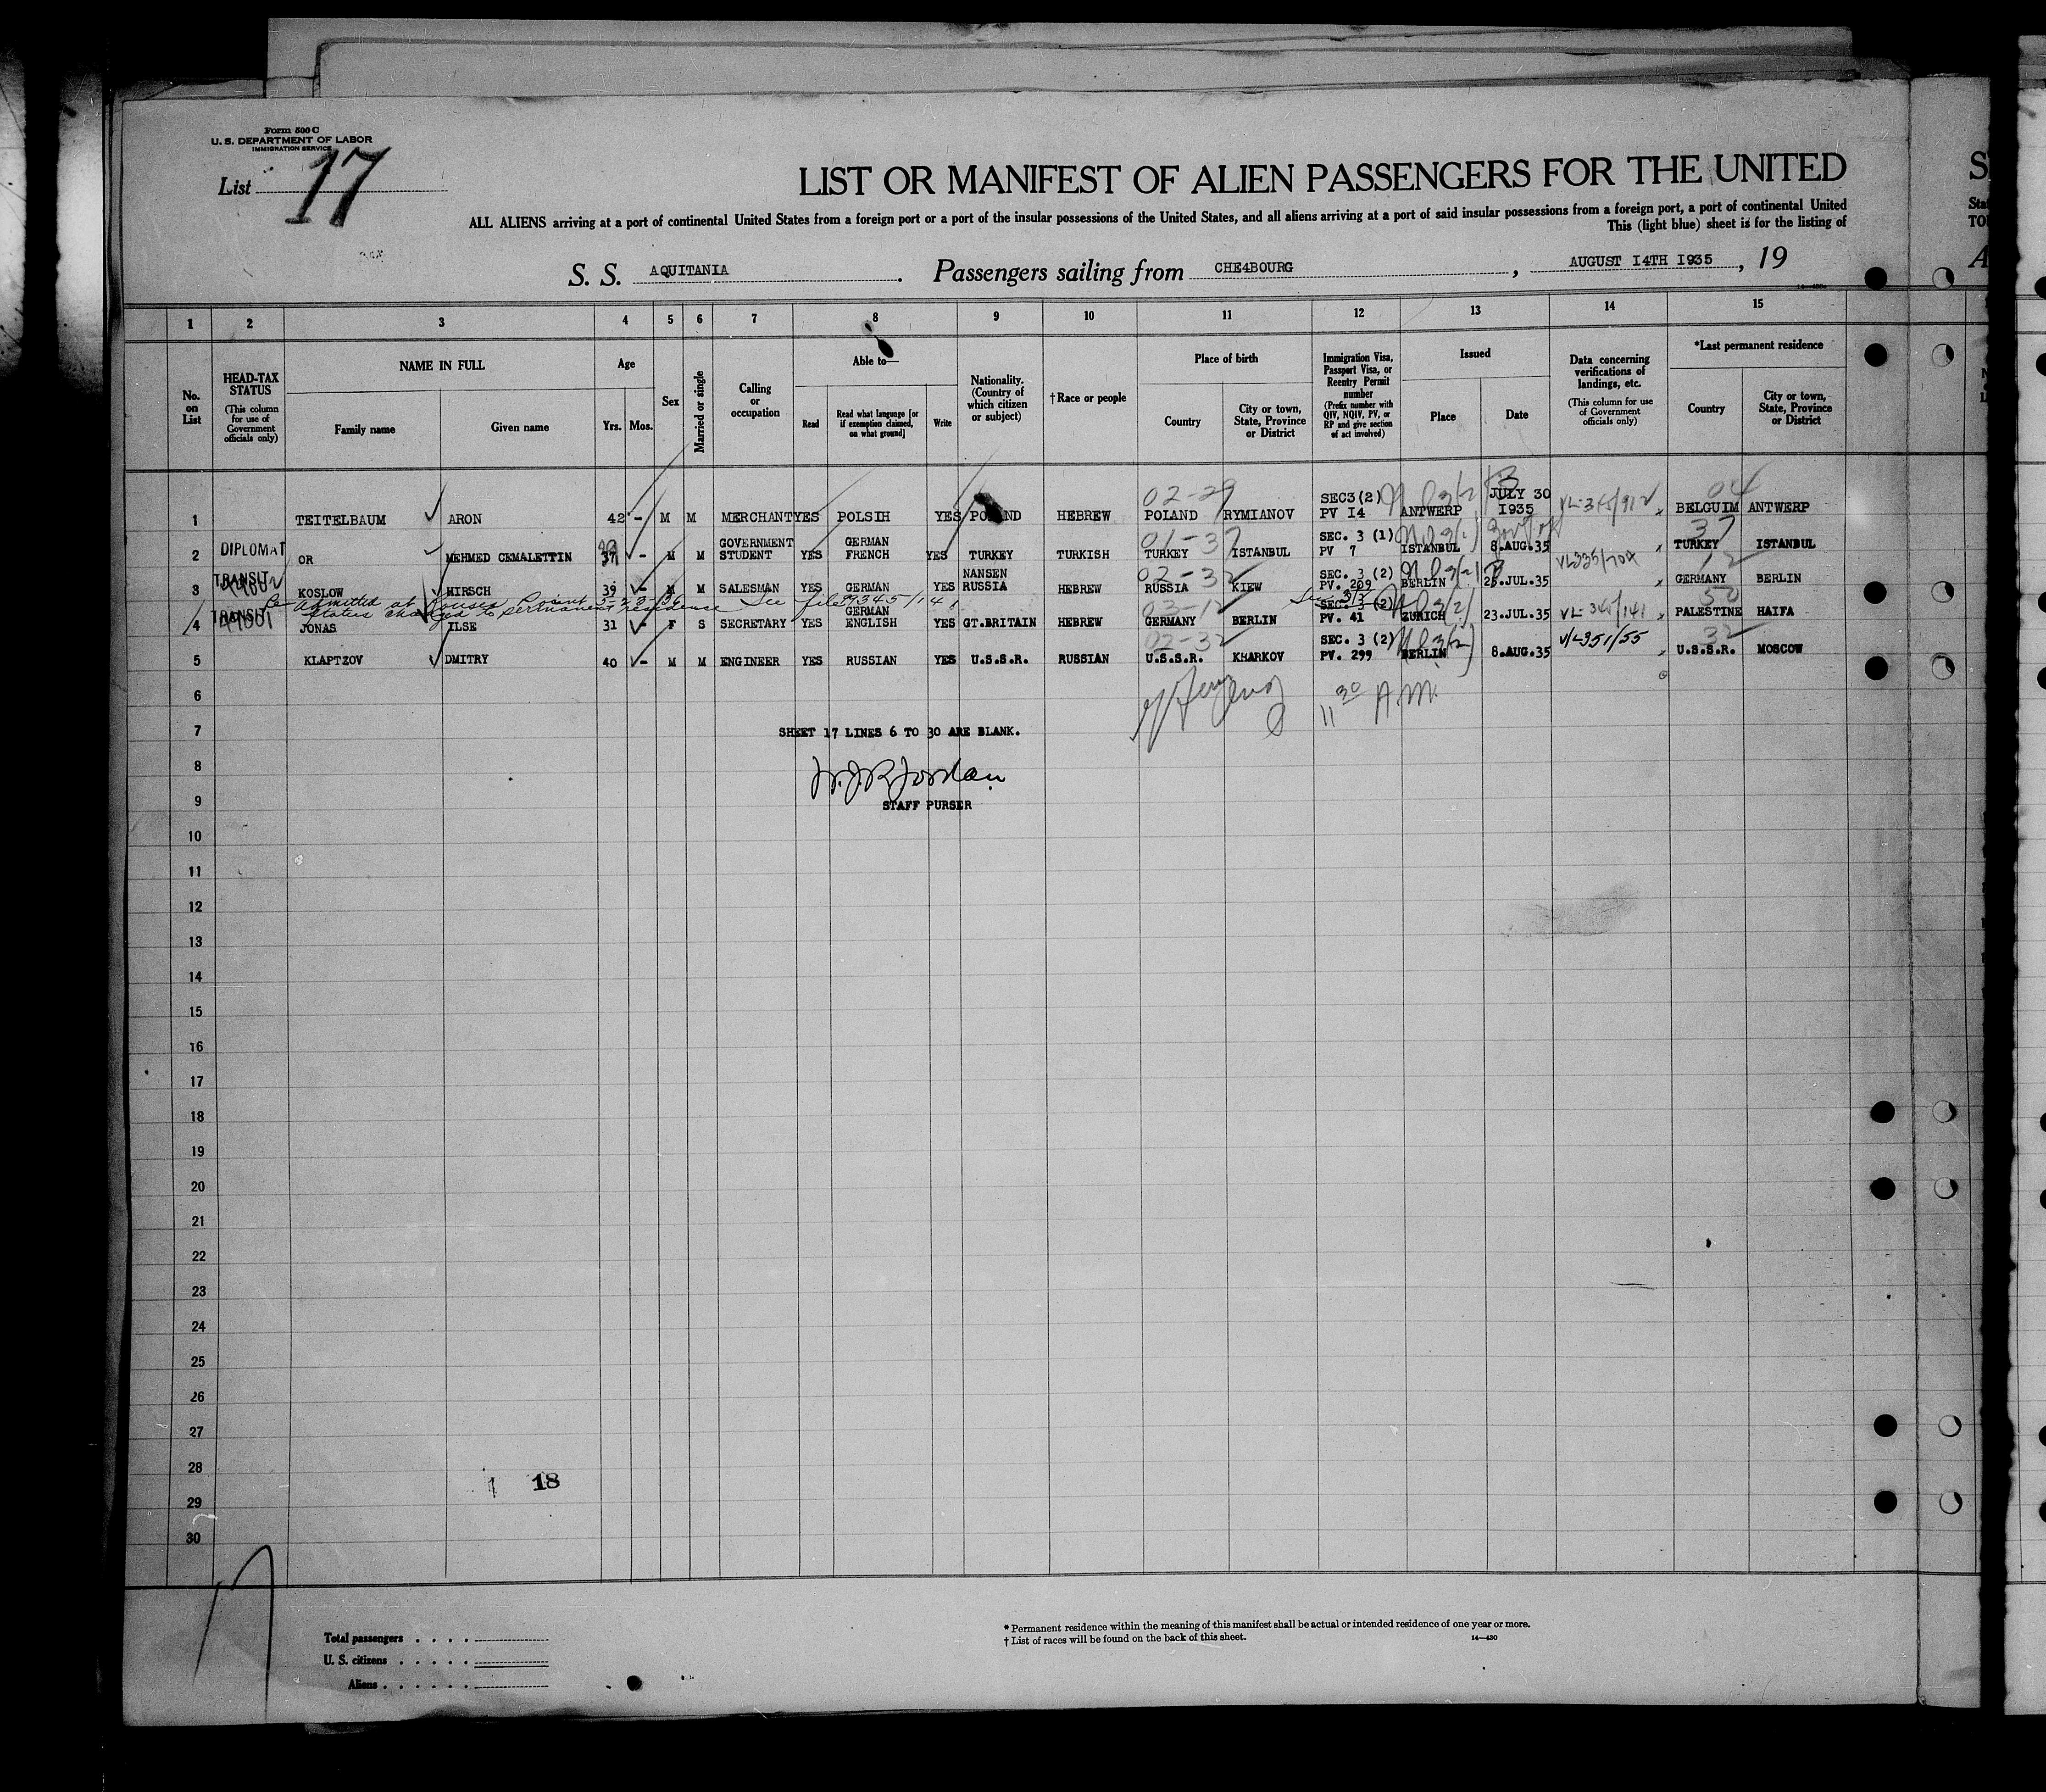 Form 500 C
U. S. DEPARTMENT OF LABOR
IMMIGRATION SERVICE
List 17
LIST OR MANIFEST OF ALIEN PASSENGERS FOR THE UNITED
ALL ALIENS arriving at a port of continental United States from a foreign port or a port of the insular possessions of the United States, and all aliens arriving at a port of said insular possessions from a foreign port, a port of continental United
This (light blue) sheet is for the listing of
S. S. AQUITANIA. Passengers sailing from CHE4BOURG, AUGUST I4TH I935, 19
1 2 3 4 5 6 7 8 9 10 11 12 13 14 15
No. on List
HEAD-TAX STATUS (This column for use of Government officials only)
NAME IN FULL
Family name Given name
Age
Yrs. Mos.
Sex
Married or single
Calling or occupation
Able to—
Read Read what language [or if exemption claimed, on what ground] Write
Nationality. (Country of which citizen or subject)
†Race or people
Place of birth
Country City or town, State, Province or District
Immigration Visa, Passport Visa, or Reentry Permit number (Prefix number with QIV, NQIV, PV, or RP and give section of act involved)
Issued
Place Date
Data concerning verifications of landings, etc. (This column for use of Government officials only)
*Last permanent residence
Country City or town, State, Province or District
02-29 04
1 TEITELBAUM ARON 42 - M M MERCHANT YES POLSIH YES POLAND HEBREW POLAND RYMIANOV SEC3(2) PV I4 ANTWERP JULY 30 I935 BELGUIM ANTWERP
01-37 37
2 DIPLOMAT OR MEHMED CEMALETTIN 37 - M M GOVERNMENT STUDENT YES GERMAN FRENCH YES TURKEY TURKISH TURKEY ISTANBUL SEC. 3 (1) PV 7 ISTANBUL 8.AUG.35 TURKEY ISTANBUL
02-32 12
3 TRANSIT KOSLOW HIRSCH 39 - M M SALESMAN YES GERMAN YES NANSEN RUSSIA HEBREW RUSSIA KIEW SEC. 3 (2) PV. 269 BERLIN 25.JUL.35 GERMANY BERLIN
admitted at Rouses Point 3-23-36 See file 99345/141
status changed to permanent residence
03-12 50
4 TRANSIT JONAS ILSE 31 - F S SECRETARY YES GERMAN ENGLISH YES GT.BRITAIN HEBREW GERMANY BERLIN SEC. 3 (2) PV. 41 ZURICH 23.JUL.35 VL-345/141 PALESTINE HAIFA
02-32 32
5 KLAPTZOV DMITRY 40 - M M ENGINEER YES RUSSIAN YES U.S.S.R. RUSSIAN U.S.S.R. KHARKOV SEC. 3 (2) PV. 299 BERLIN 8.AUG.35 V/L351/55 U.S.S.R. MOSCOW
6
11 30 A.M.
7 SHEET 17 LINES 6 TO 30 ARE BLANK.
8
W. J R Jordan
9 STAFF PURSER
10
11
12
13
14
15
16
17
18
19
20
21
22
23
24
25
26
27
28
18
29
30
17
Total passengers
U. S. citizens
Aliens
* Permanent residence within the meaning of this manifest shall be actual or intended residence of one year or more.
† List of races will be found on the back of this sheet.
14—430